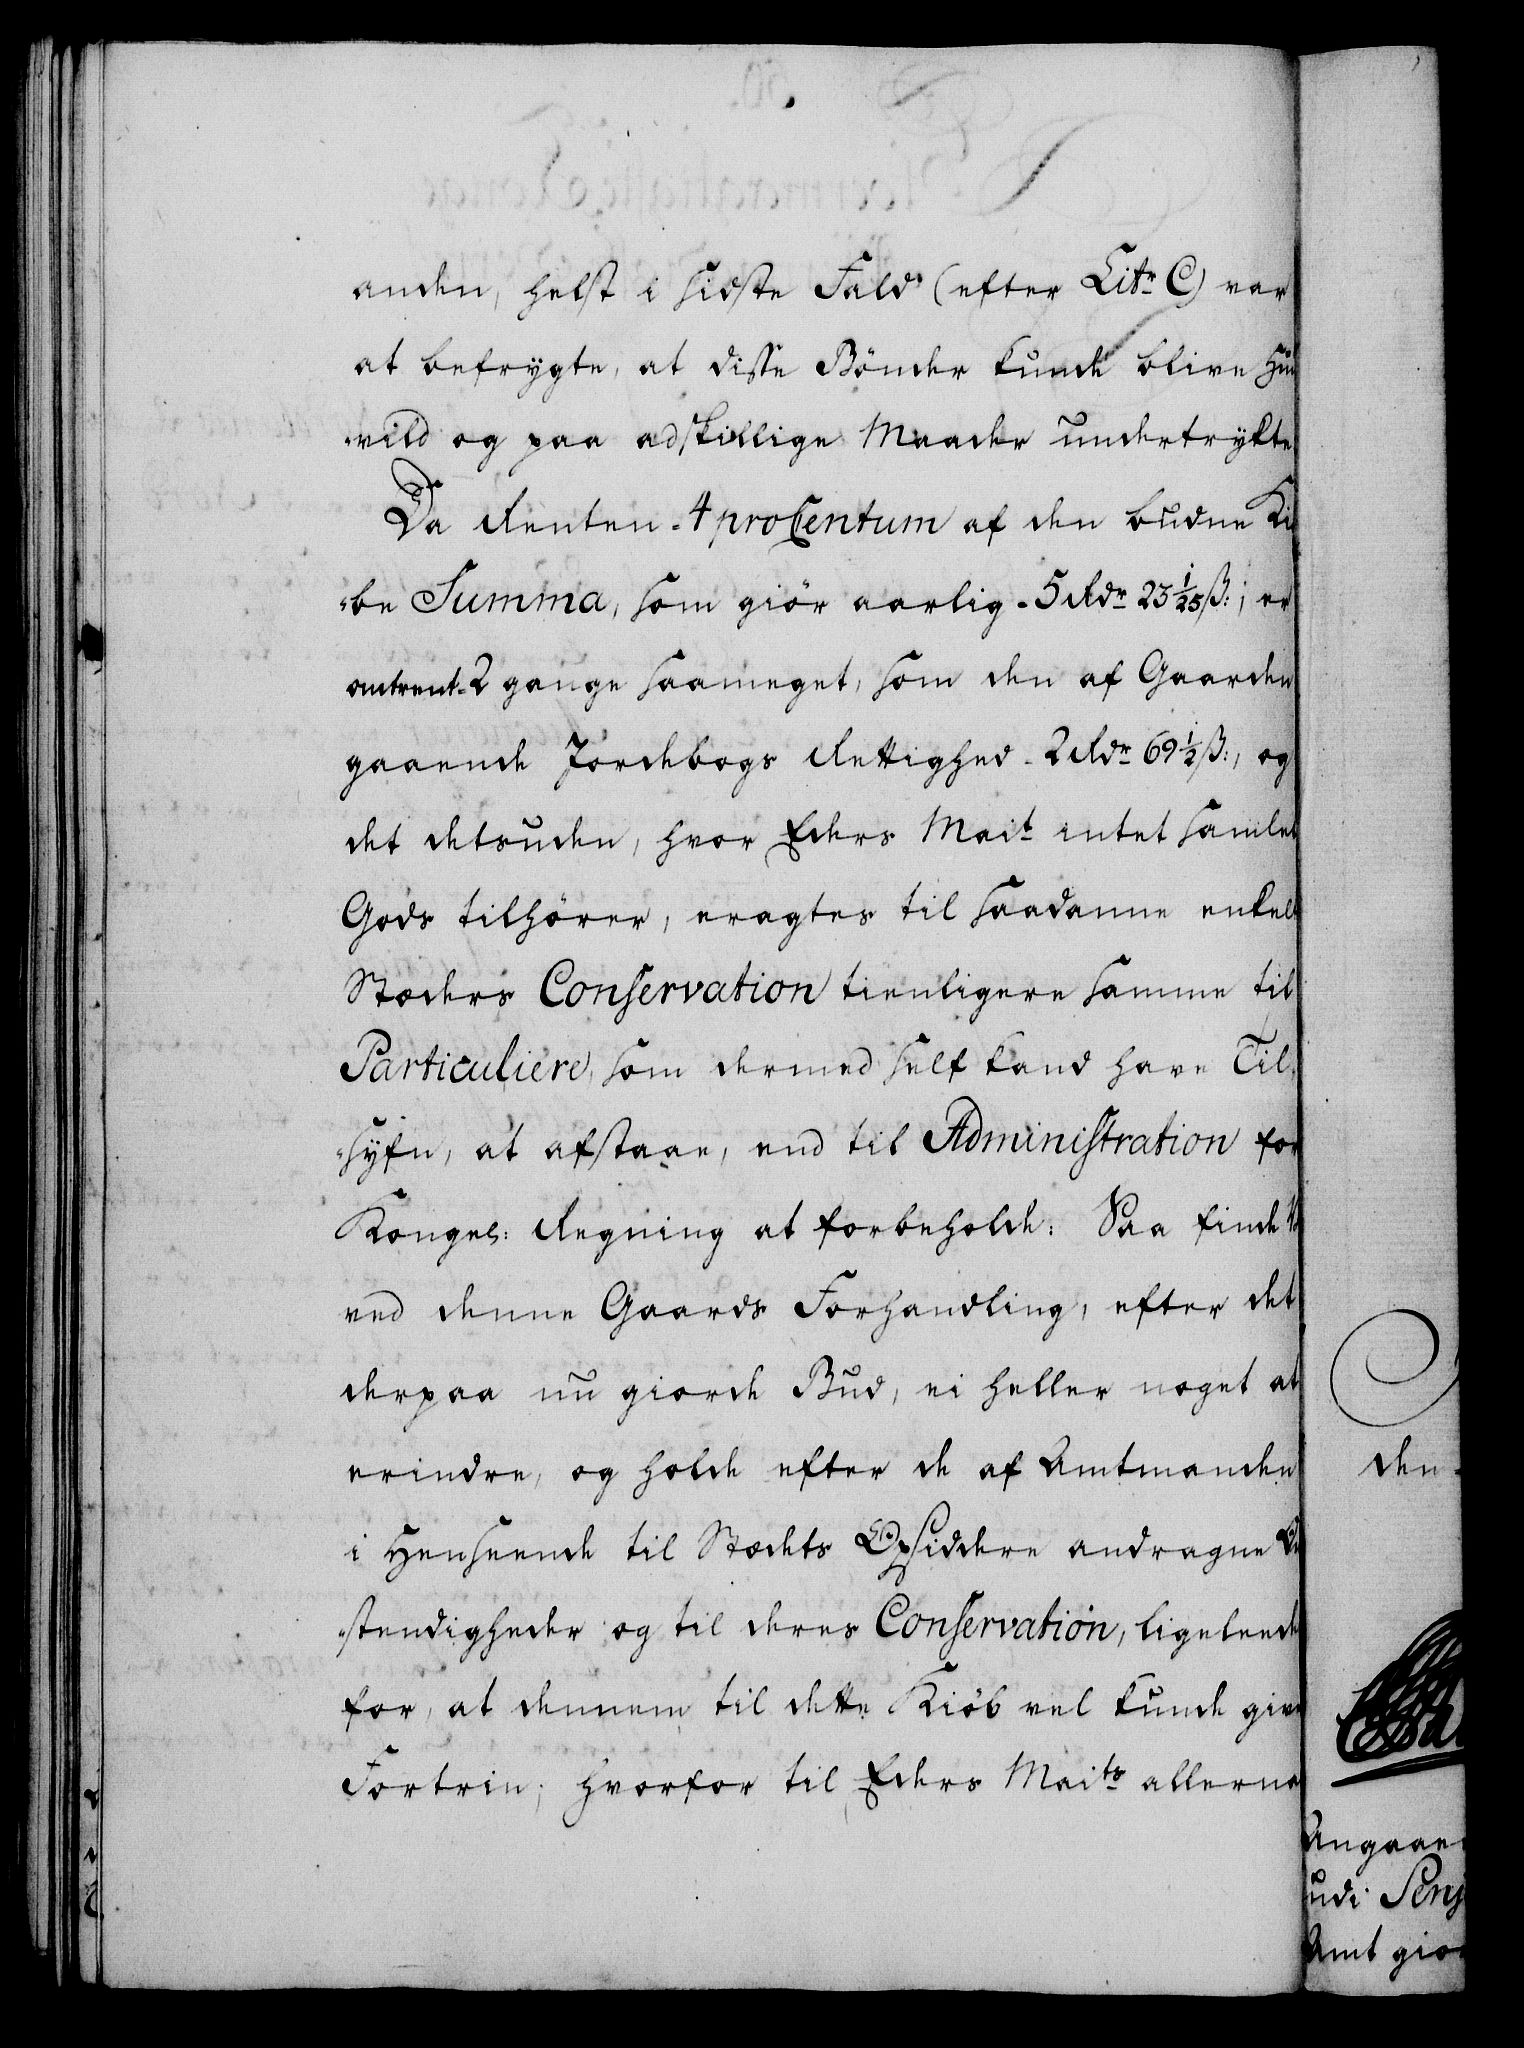 anden, helst i sidste Fald (efter Litr C) var
at befrygte, at disse Bönder kunde blive
-vild og paa adskillige Maader undertrykte
Da Renten 4 proCentum af den budne Ki
-be Summa, som giör aarlig 5 Rdr 23 1/25 ß:, er
omtrent 2 gange saameget, som den af Gaarden
gaaende Jordebogs Rettighed 2 Rdr 69 1/2 ß:, og
det desuden, hvor Eders Mait intet samlet
Gods tilhörer, eragtes til saadanne enkelt
Stæders Conservation tienligere samme til
Particuliere, som dermed self kand have Til-
-syfn, at afstaae, end til Administration for
Kongel: Regning at forbeholde: Saa finde
ved denne Gaards Forhandling, efter det
derpaa nu giorde Bud, ei heller noget at
erindre, og holde efter de af Amtmanden
i Henseende til Stædets Opsiddere andragne
-stendigheder og til deres Conservation, ligeleede
for, at dennem til dette Kiöb vel kunde give
Fortrin; hvorfor til Eders Maits allerna
den
Angaae
udi Senj
Amt gio